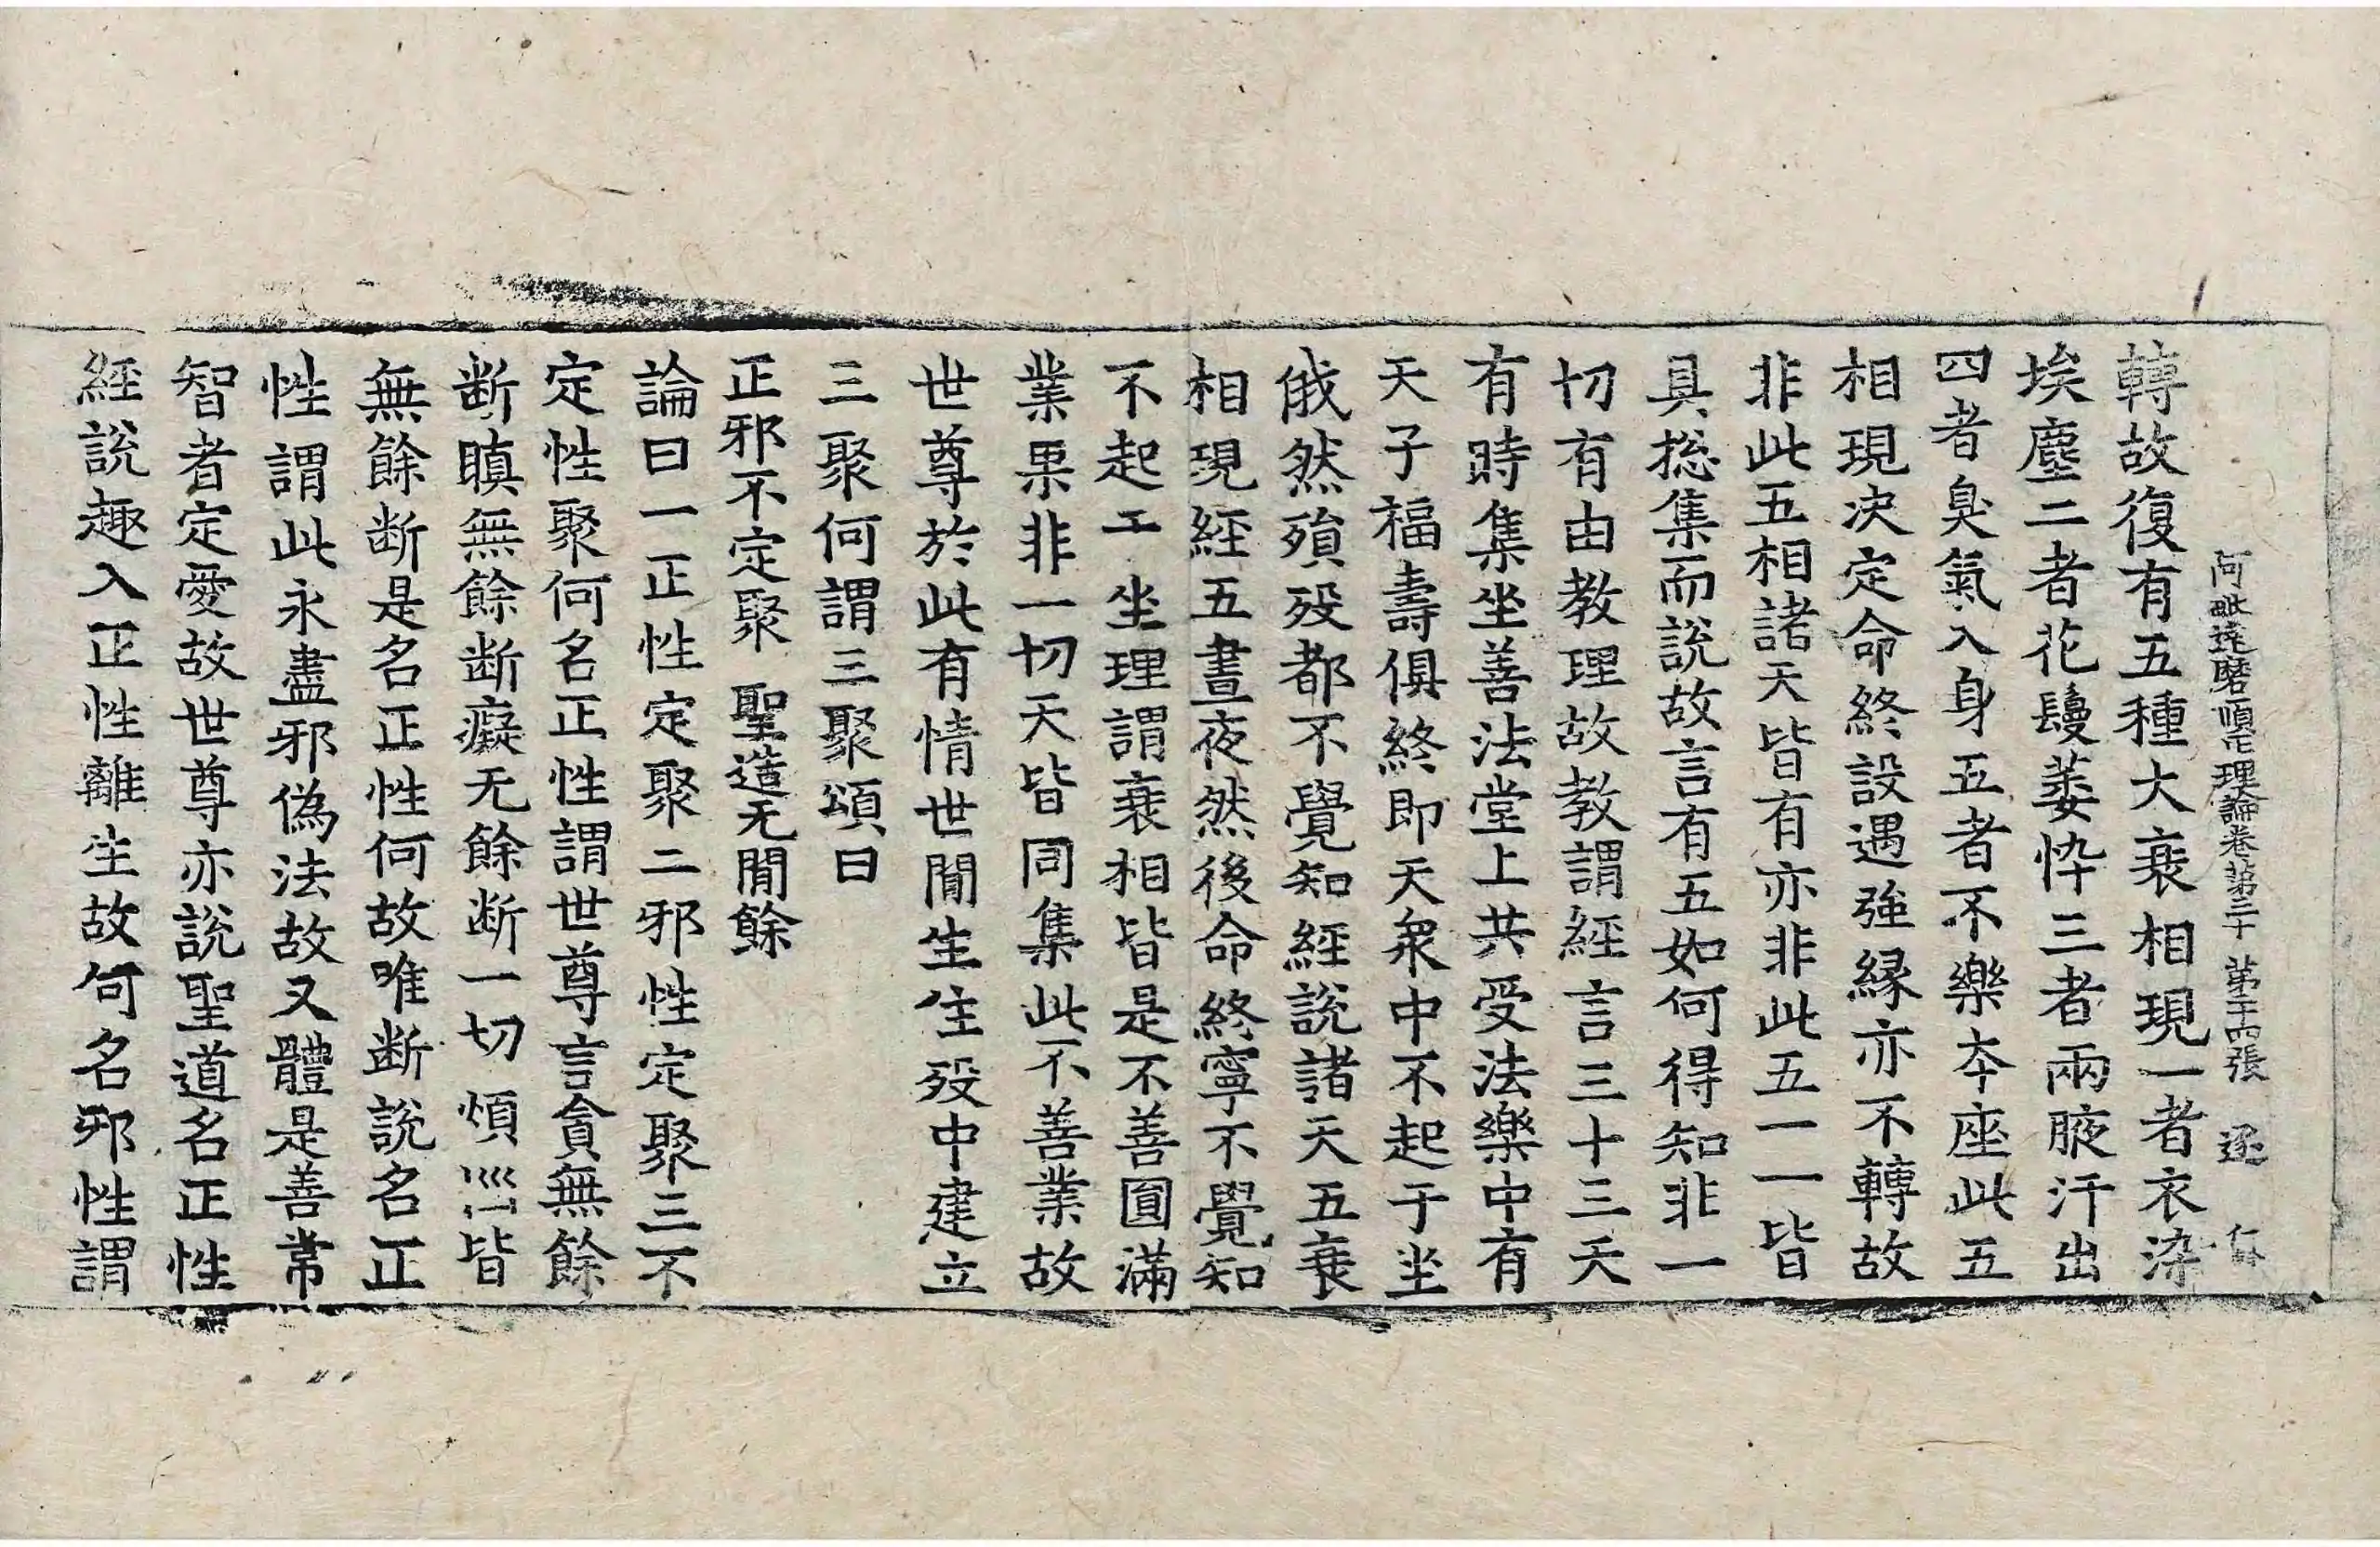 阿毗達磨順正理論卷第三十 第二十四張 逐
轉故復有五種大衰相現一者衣染
埃塵二者花鬘萎悴三者兩腋汗出
四者臭氣入身五者不樂本座此五
相現決定命終設遇強緣亦不轉故
非此五相諸天皆有亦非此五一一皆
具捴集而說故言有五如何得知非一
切有由教理故教謂經言三十三天
有時集坐善法堂上共受法樂中有
天子福壽俱終即天衆中不起于坐
俄然殞歿都不覺知經說諸天五衰
相現經五晝夜然後命終寧不覺知
不起于坐理謂衰相皆是不善圓滿
業果非一切天皆同集此不善業故
世尊於此有情世閒生住歿中建立
三聚何謂三聚頌曰
正邪不定聚 聖造无閒餘
論曰一正性定聚二邪性定聚三不
定性聚何名正性謂世尊言貪無餘
断瞋無餘断癡无餘断一切煩皆
無餘断是名正性何故唯断說名正
性謂此永盡邪偽法故又體是善常
智者定愛故世尊亦說聖道名正性
經說趣入正性離生故何名邪性謂